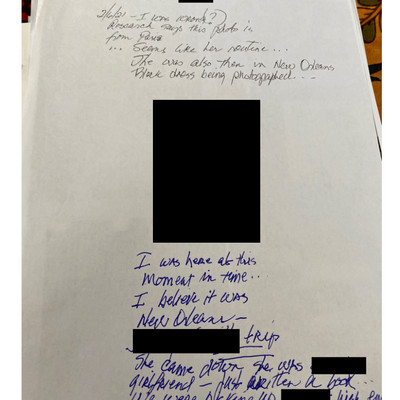 2/6/21 - I was wrong?
Research says this photo is
from Paris
... Seems like her routine...
She was also then in New Orleans
Black dress being photographed...
I was here at this
moment in time..
I believe it was
New Orleans -
trip
She came down, she was
girlfriend - just written a book...
were picking up high